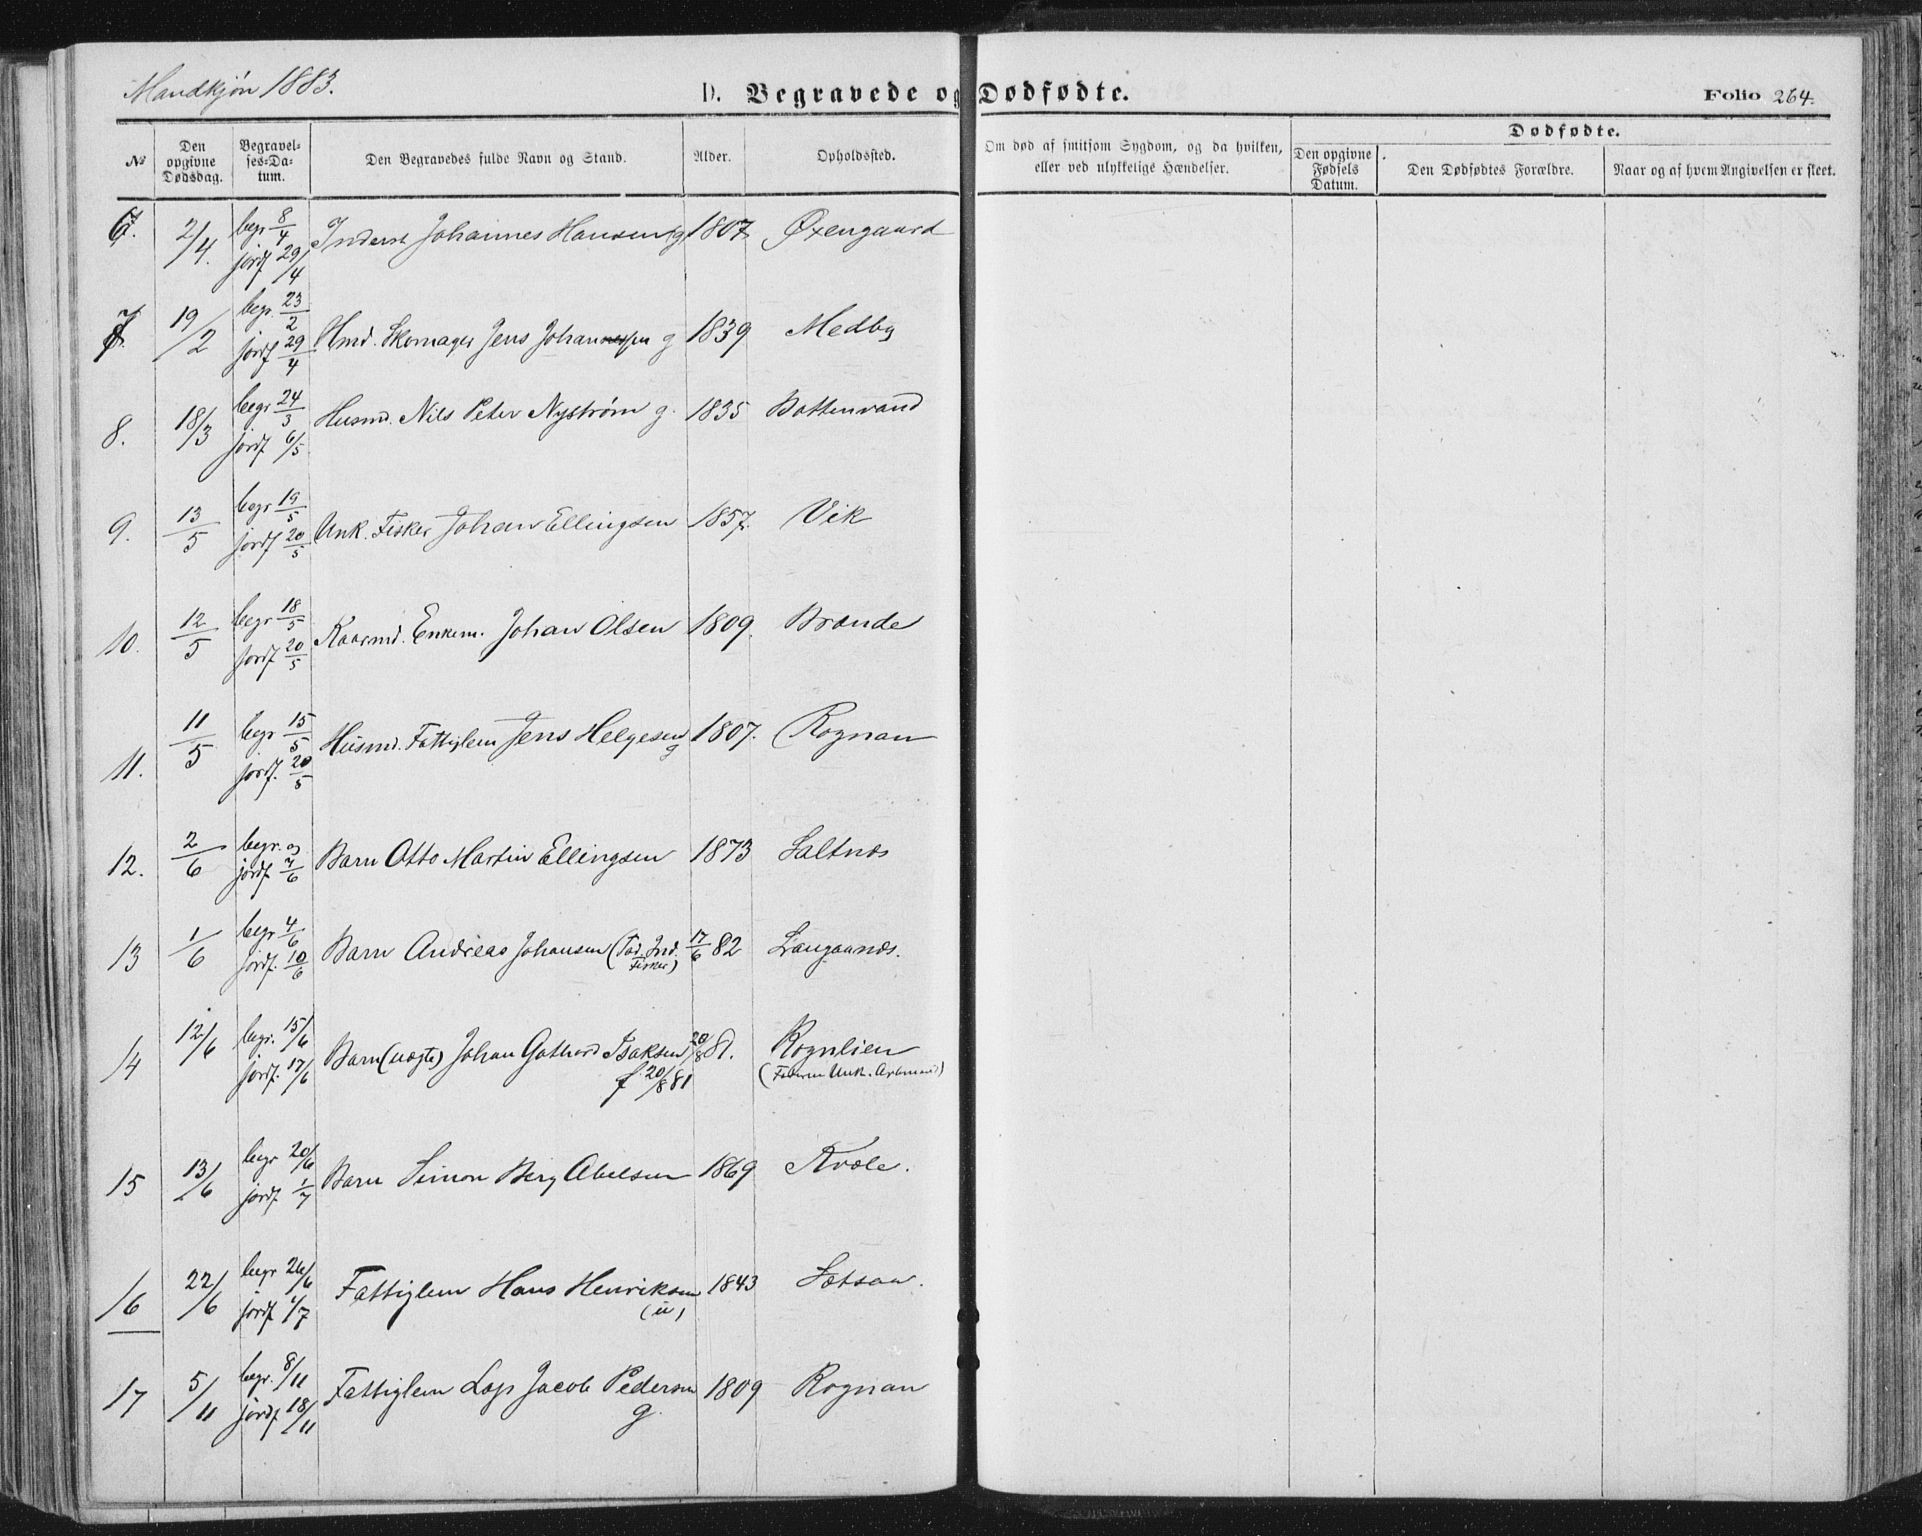 Mandkjøn 1883.
D. Begravede og Dødfødte.
Folio 264.
№
Den opgivne Dødsdag.
Begravelses-Datum.
Den Begravedes fulde Navn og Stand.
Alder.
Opholdssted.
Om død af smitsom Sygdom, og da hvilken, eller ved ulykkelige Hændelser.
Dødfødte.
Den opgivne Fødsels Datum.
Den Dødfødtes Forældre.
Naar og af hvem Angivelsen er skeet.
6. 2/4. begr 8/4 jordf 29/4 Inderst Johannes Hansen g 1807 Øxengaard
7. 19/2 begr. 23/2 jordf 29/4 Hmd. Skomager Jens Johannessen g 1839 Medby
8. 18/3 begr 24/3 jordf 6/5 Husmd. Nils Peter Nystrøm g. 1835 Bottenvand
9. 13/5 begr 19/5 jordf 20/5 Unk. Fisker Johan Ellingsen 1857. Vik
10. 12/5 begr 18/5 jordf 20/5 Kaarmd. Enkem. Johan Olsen 1809. Brænde
11. 11/5 begr 15/5 jordf. 20/5 Husmd. Fattiglem Jens Helgesen g 1807. Rognan
12. 2/6 begr. og jordf 7/6 Barn Otto Martin Ellingsen 1873 Saltnæs
13 1/6 begr 4/6 jordf. 10/6 Barn Andreas Johansen (Fad. Ind. Fisker) 17/6 82 Langaanæs.
14 12/6 begr. 15/6 jordf. 17/6 Barn (uægte) Johan Gothard Isaksen 20/8 81. Rognlien
f 20/8 81 (Faderen Unk. Arbmand)
15 13/6 begr 20/6 jordf. 1/7 Barn Simon Berg Abelsen 1869 Kvæle.
16 22/6 begr 26/6 jordf 1/7 Fattiglem Hans Henriksen (u) 1843 Sætsaa.
17 5/11 begr. 8/11 jordf 18/11 Fattiglem Lap Jacob Pedersen g. 1809 Rognan